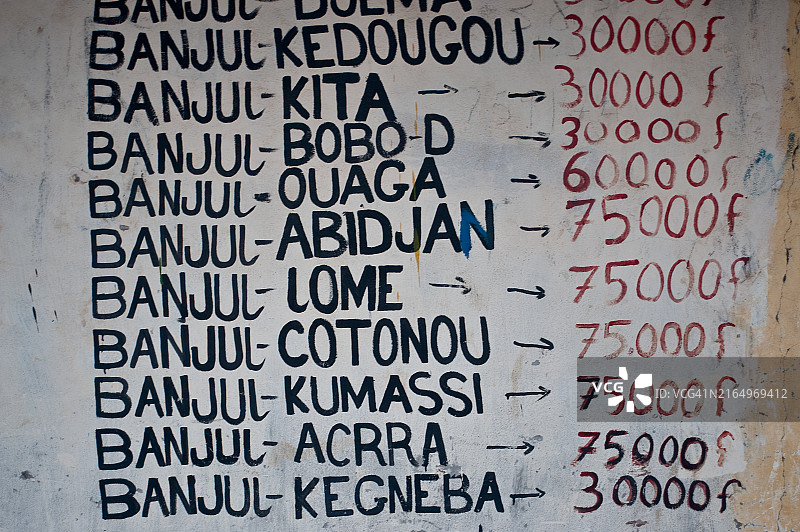 BANJUL-
BANJUL-KEDOUGOU → 30000f
BANJUL-KITA → → 30000 f
BANJUL-BOBO-D → 30000f
BANJUL-OUAGA → 60000f
BANJUL-ABIDJAN → 75000f
BANJUL-LOME → → 75000f
BANJUL-COTONOU → 75.000f
BANJUL-KUMASSI → 75000f
BANJUL-ACRRA → 75000f
BANJUL-KEGNEBA → 30000f
VCG VCG41N2164969412